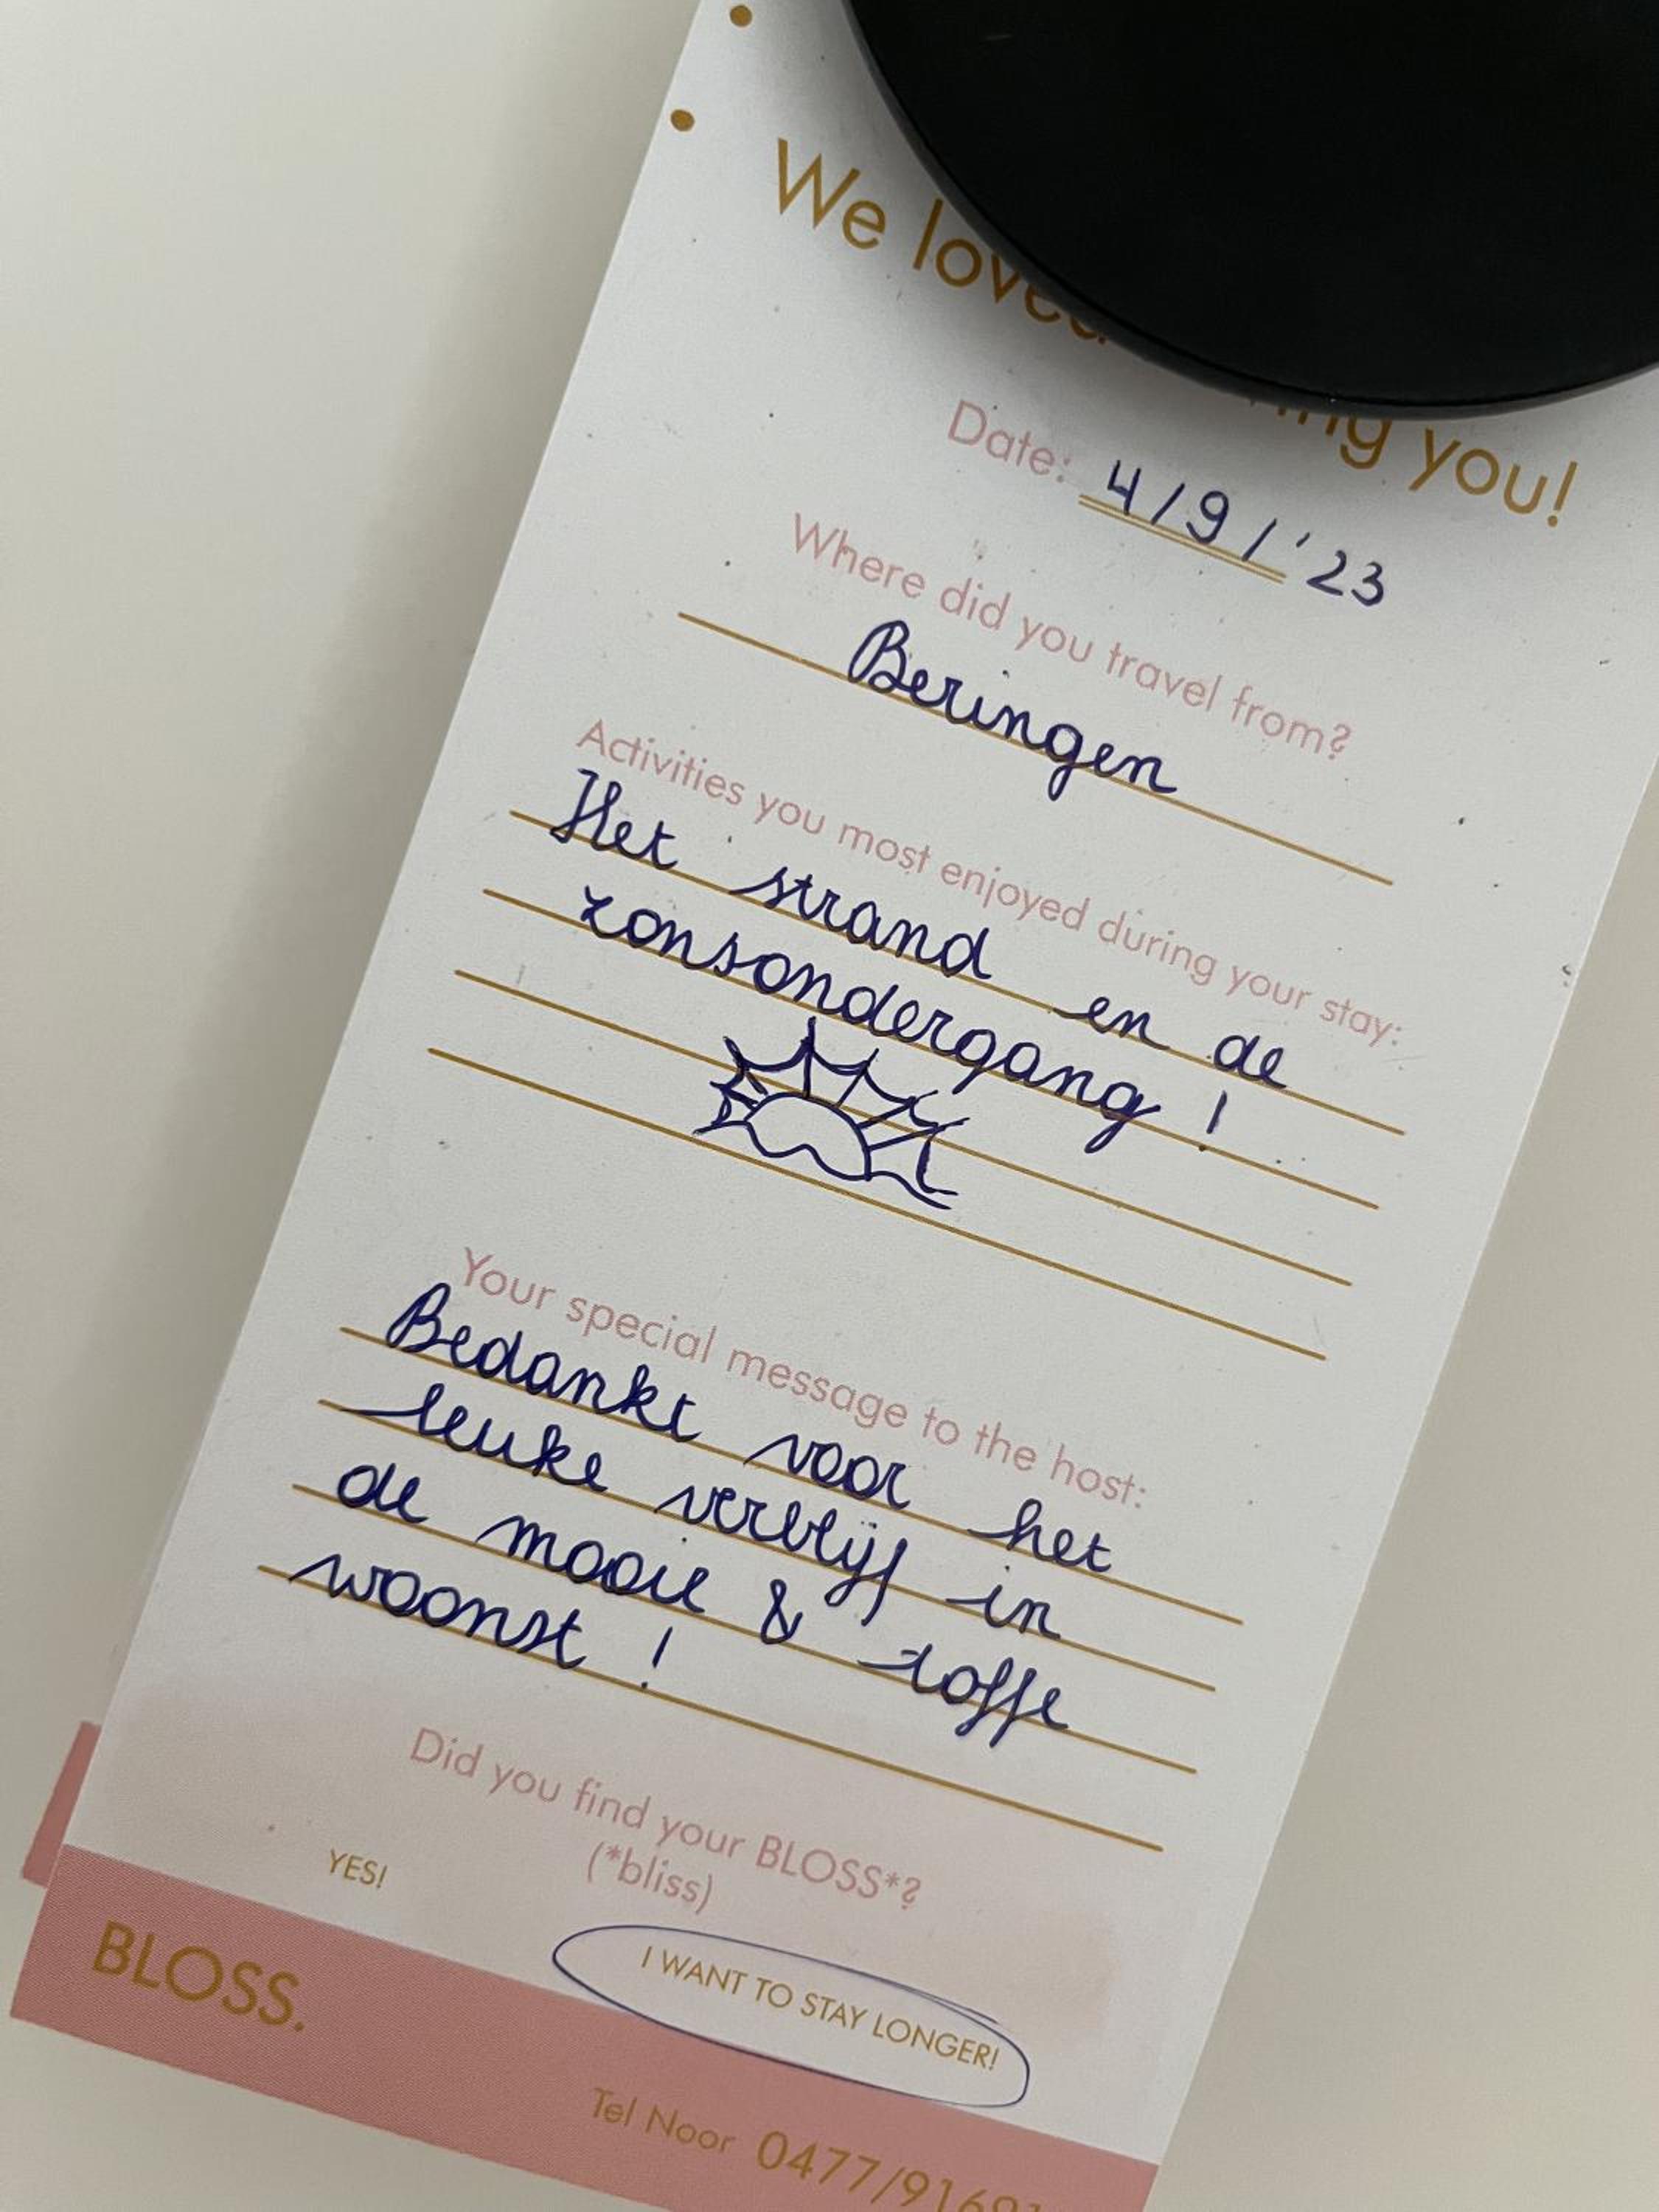 We loved
you!
Date: 4/9/'23
Where did you travel from?
Beringen
Activities you most enjoyed during your stay:
Het strand en de
zonsondergang !
Your special message to the host:
Bedankt voor het
leuke verblijf in
de mooie & toffe
woonst !
Did you find your BLOSS*?
(*bliss)
YES!
I WANT TO STAY LONGER!
BLOSS.
Tel Noor